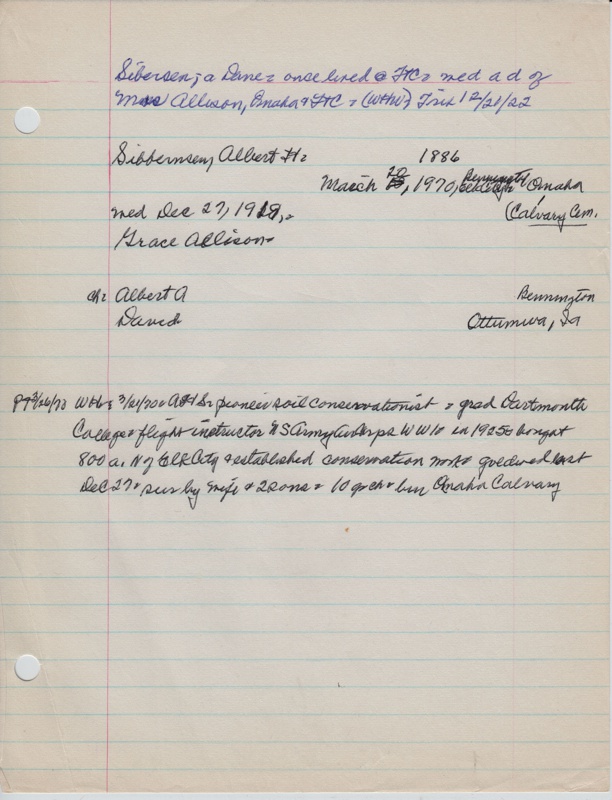 Sibersen; a Dane = once lived @ FtC = med a d of
Mrs Allison, Omaha & FtC = (WHW) Trib 12/21/22
Sibbernsen, Albert H = 1886
March 20, 1970, Bennington Omaha
med Dec 27, 1918, = (Calvary Cem.
Grace Allison
ch = Albert A Bennington
David Ottumwa, Ia
PT 3/26/70 WHb = 3/21/70 = AH Sr pioneer soil conservationist = grad Dartmouth
College = flight instructor US Army Air Corps WW 1 = in 1925 = bought
800 a. N of Elk City & established conservation work = gold wed last
Dec 27 = sur by wife & 2 sons = 10 gr ch = bur Omaha Calvary